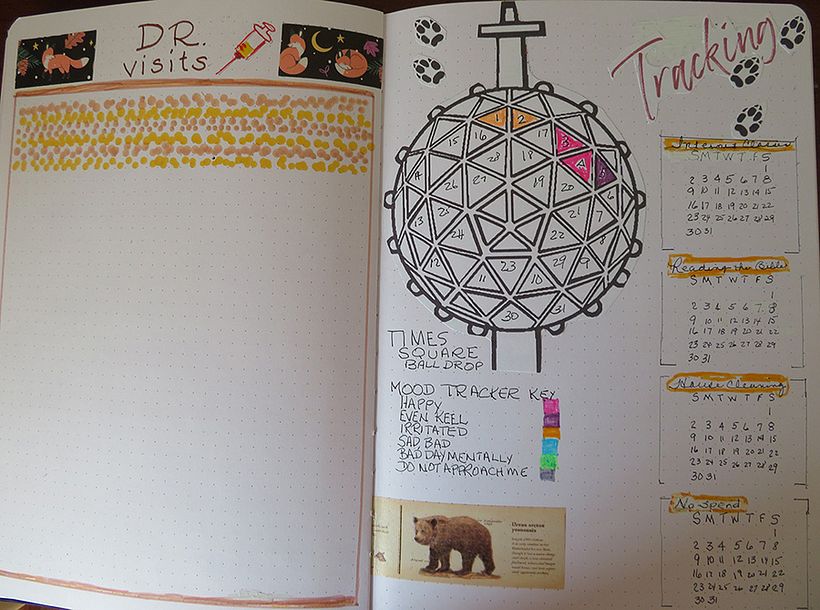 DR.
visits
Tracking
1 2
15 16 17 3
28 18 4 5
14 26 27 19 20 6
13 25 21 7
24 22 8
12 11 23 10 29 9
30 31
TIMES
SQUARE
BALL DROP
MOOD TRACKER KEY
HAPPY
EVEN KEEL
IRRITATED
SAD, BAD
BAD DAY MENTALLY
DO NOT APPROACH ME
Ursus arctos
S M T W T F S
1
2 3 4 5 6 7 8
9 10 11 12 13 14 15
16 17 18 19 20 21 22
23 24 25 26 27 28 29
30 31
Reading the Bible
S M T W T F S
1
2 3 4 5 6 7 8
9 10 11 12 13 14 15
16 17 18 19 20 21 22
23 24 25 26 27 28 29
30 31
House Cleaning
S M T W T F S
1
2 3 4 5 6 7 8
9 10 11 12 13 14 15
16 17 18 19 20 21 22
23 24 25 26 27 28 29
30 31
No Spend
S M T W T F S
1
2 3 4 5 6 7 8
9 10 11 12 13 14 15
16 17 18 19 20 21 22
23 24 25 26 27 28 29
30 31